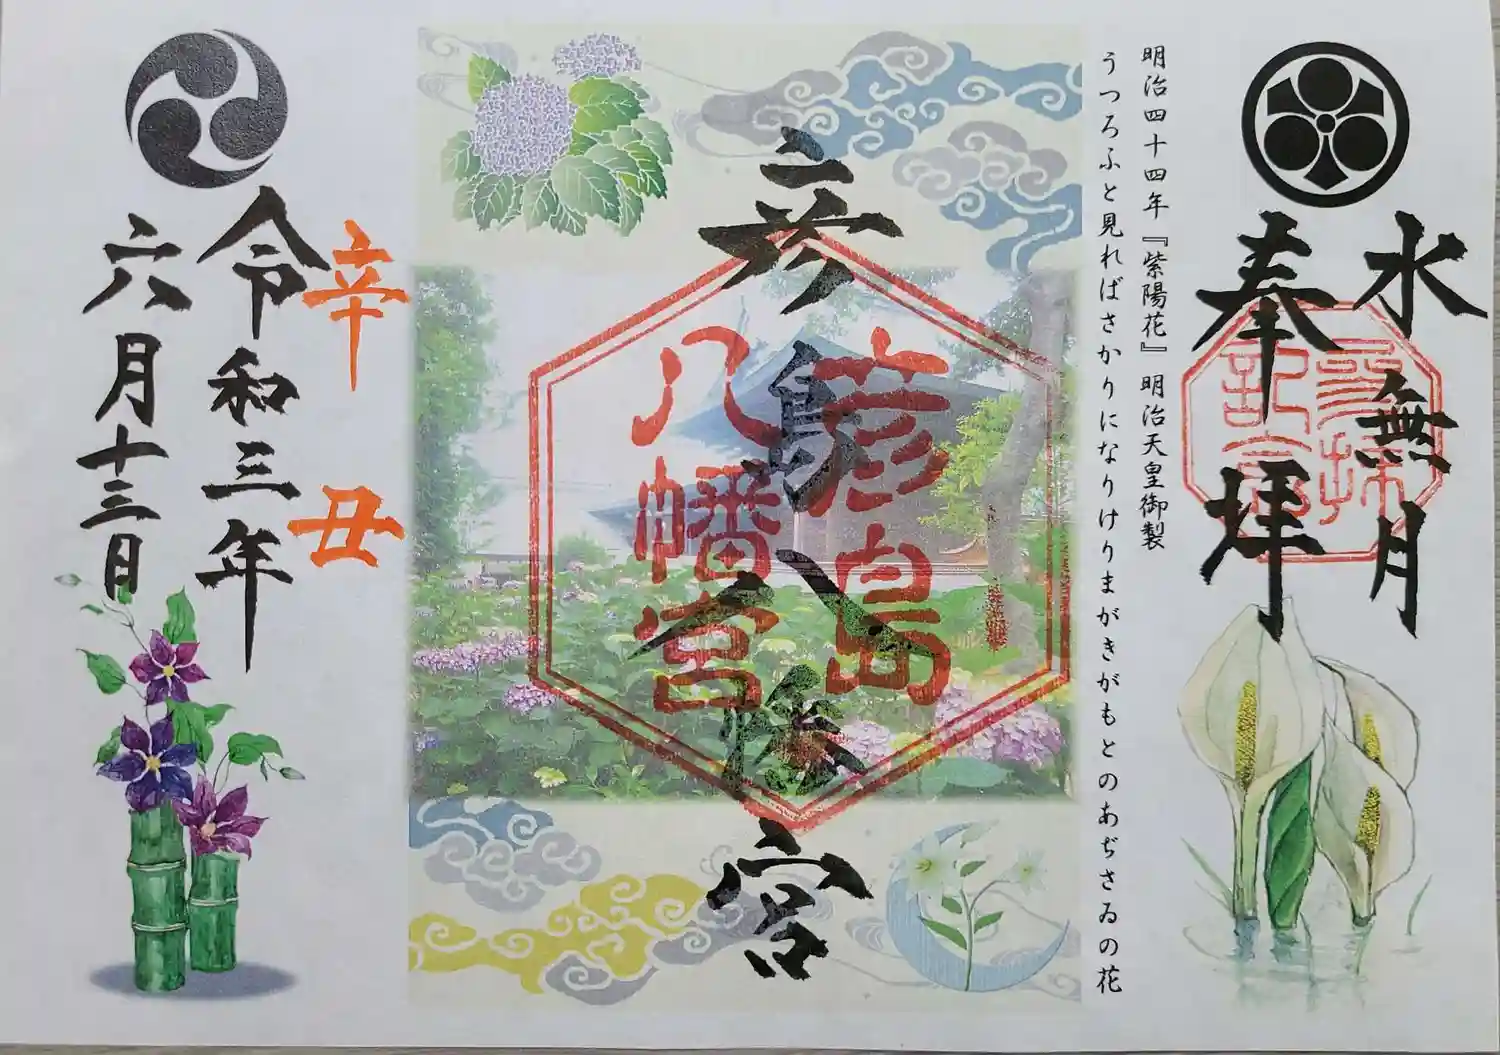 水無月
奉拝
明治四十四年『紫陽花』 明治天皇御製
うつろふと見ればさかりになりけりまがきがもとのあぢさゐの花
彦島八幡宮
彦島
八幡宮
辛丑
令和三年
六月十三日